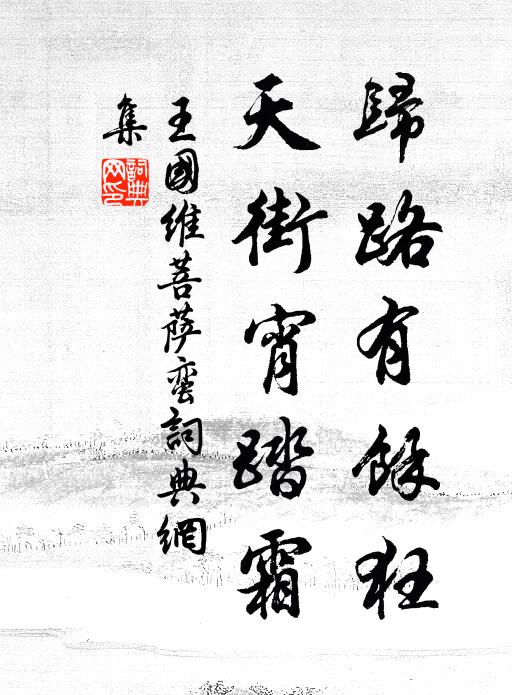 歸路有餘狂
天街宵踏霜
王國維菩薩蠻詞典網
集
詞典网印